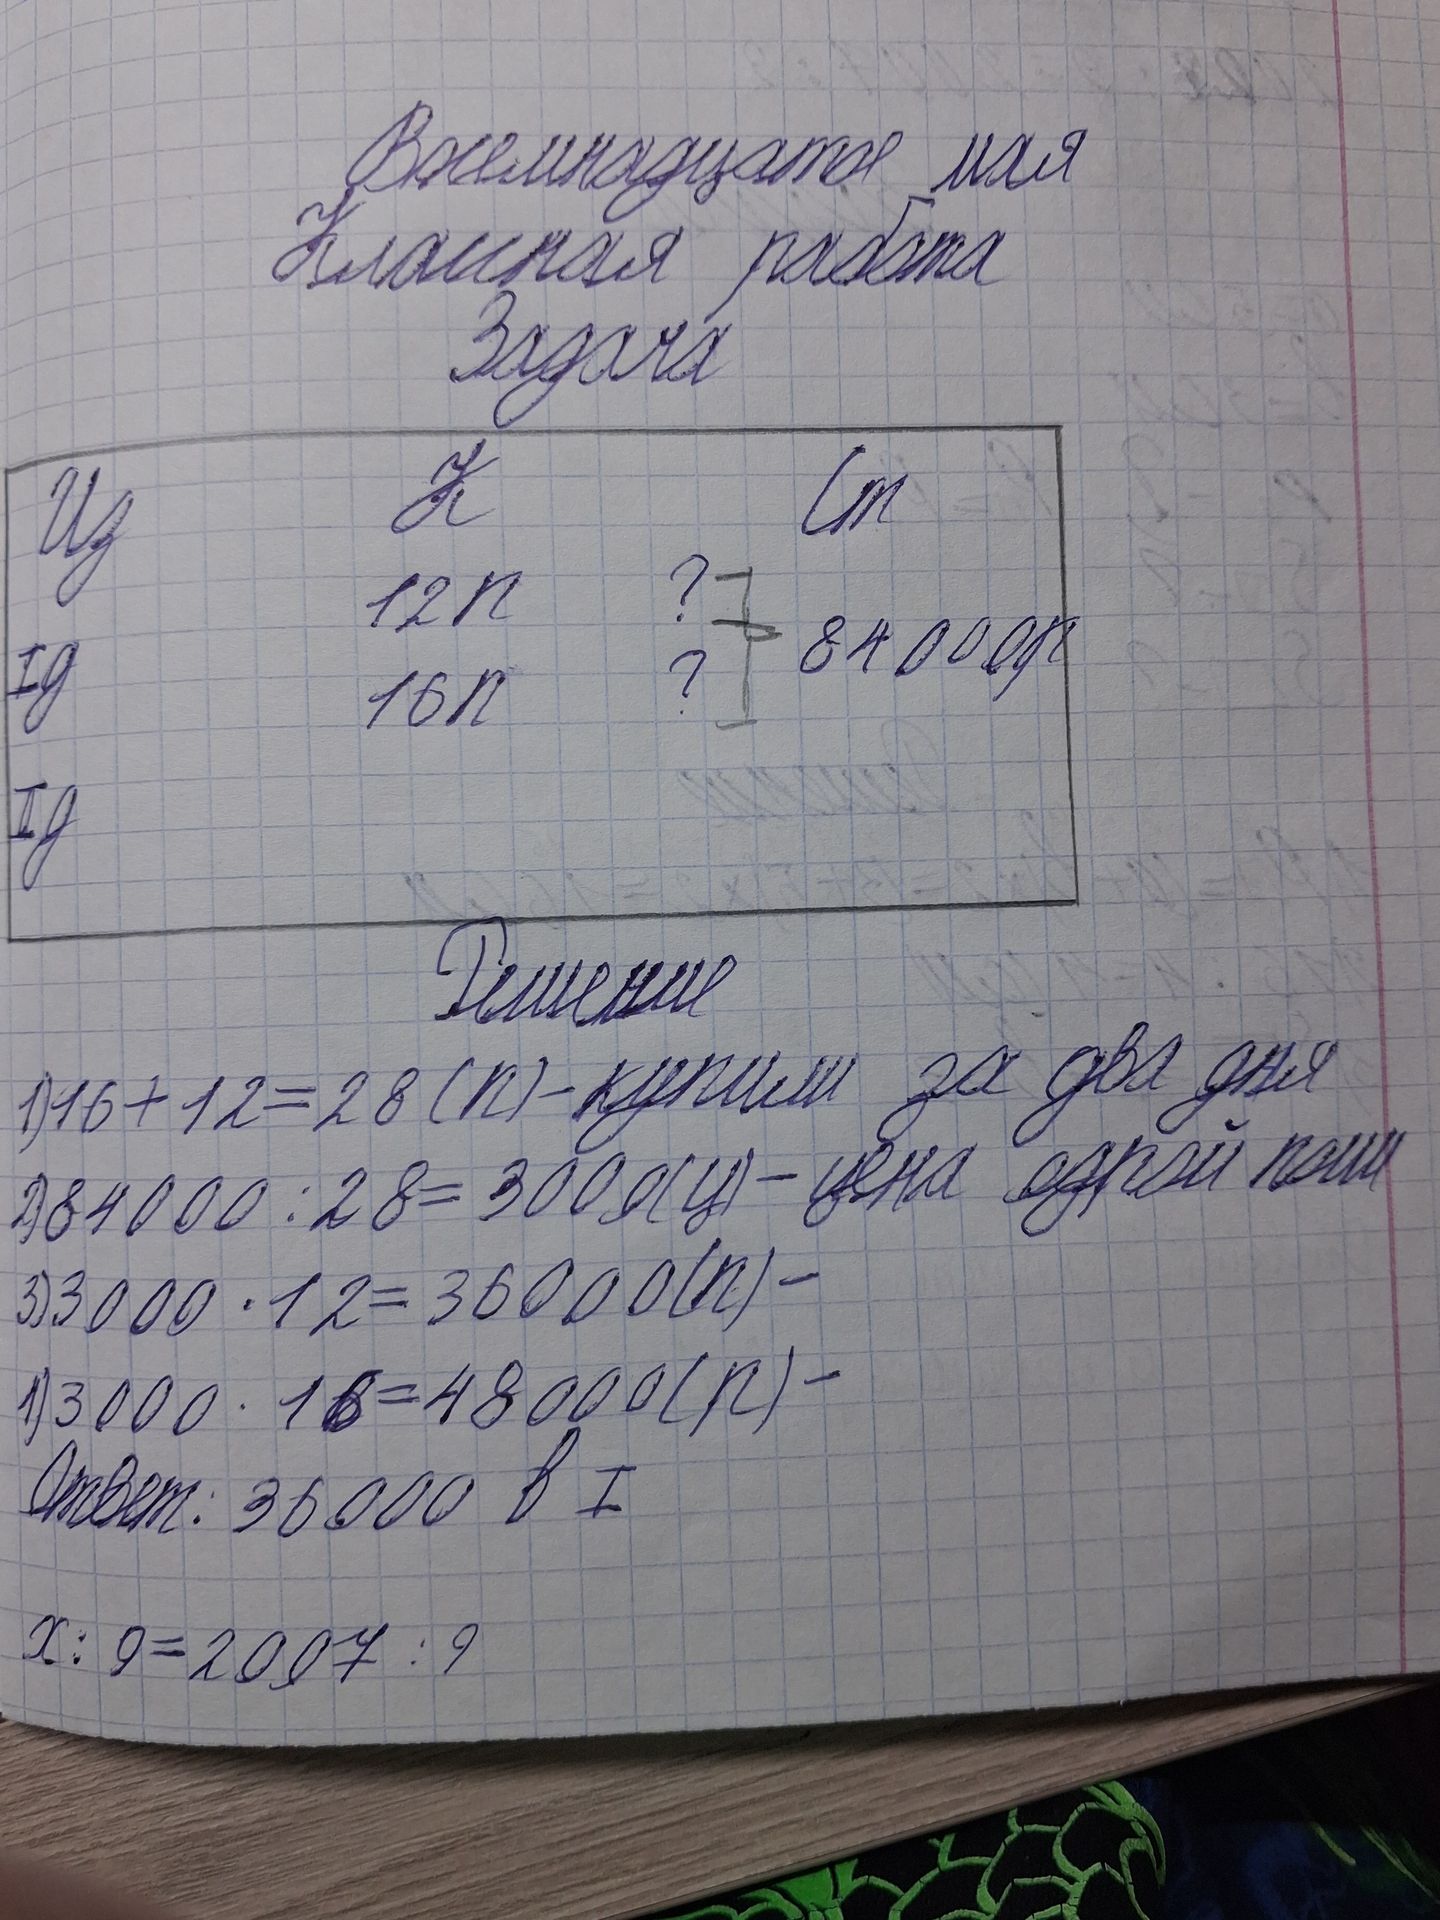 Восемнадцатое мая
Классная работа
Задача
Из К Ст
12п ?
Iд 84000р
16п ?
IIд
Решение
1)16+12=28(п)-купили за два дня
2)84000:28=3000(ц)-цена одной
3)3000·12=36000(п)-
1)3000·16=48000(п)-
Ответ: 36000 в I
х:9=2007:9